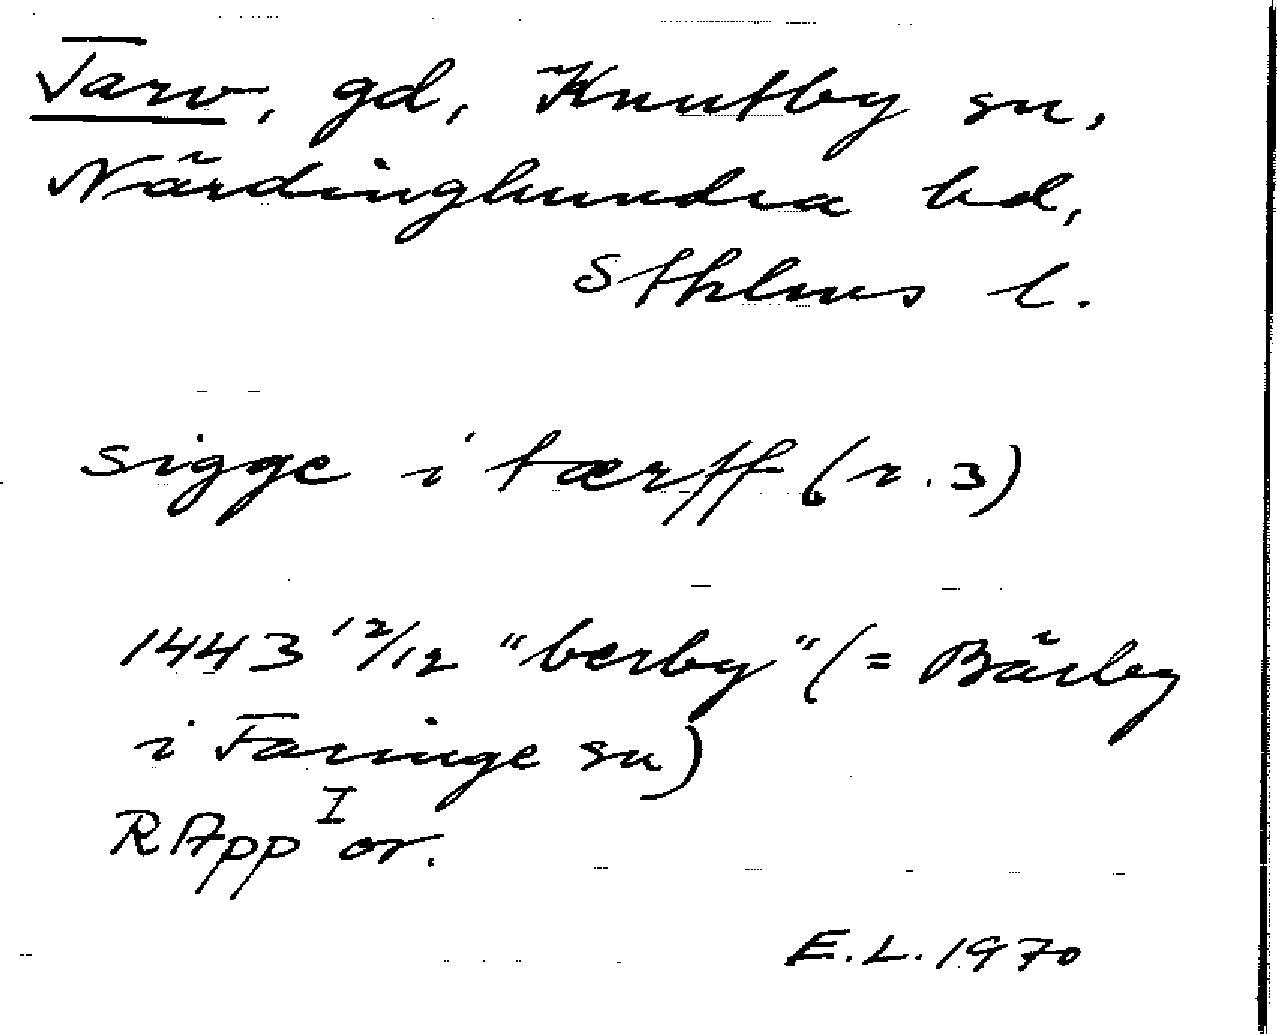 Tarv, gd, Knutby sn,
Närdinghundra hd,
Sthlms l.
sigge i tærff (r. 3)
1443 12/12 "bærby" (= Bärby
i Faringe sn)
RApp I or.
E.L. 1970